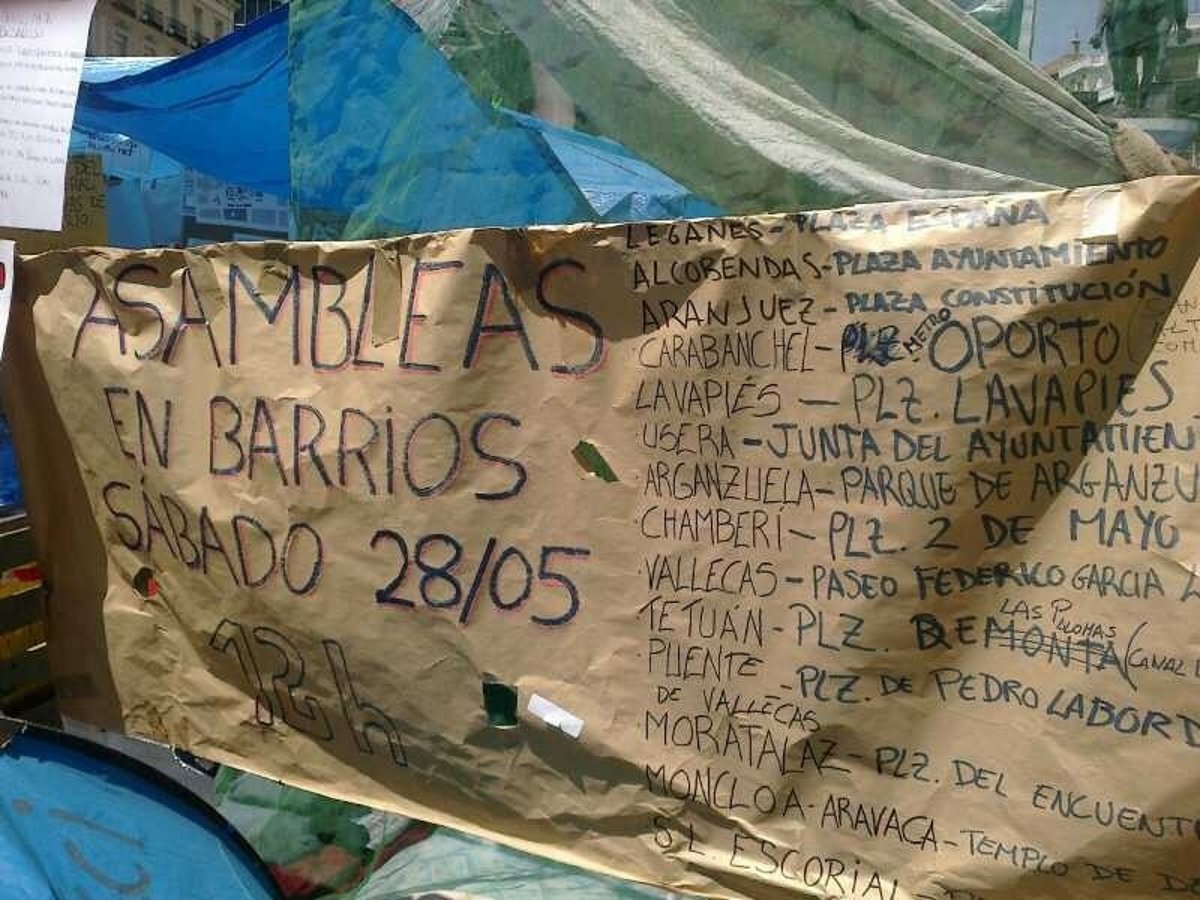 ASAMBLEAS
EN BARRIOS
SÁBADO 28/05
12h
LEGANÉS - PLAZA ESPAÑA
ALCOBENDAS - PLAZA AYUNTAMIENTO
ARANJUEZ - PLAZA CONSTITUCIÓN
CARABANCHEL - PLZ. METRO OPORTO (
LAVAPIÉS — PLZ. LAVAPIES
USERA - JUNTA DEL AYUNTAMIEN
ARGANZUELA - PARQUE DE ARGANZU
CHAMBERÍ - PLZ. 2 DE MAYO
VALLECAS - PASEO FEDERICO GARCIA L
TETUÁN - PLZ. REMONTA LAS PALOMAS (CANAL
PUENTE DE VALLECAS - PLZ. DE PEDRO LABORD
MORATALAZ - PLZ. DEL ENCUENT
MONCLOA - ARAVACA - TEMPLO DE D
S. L. ESCORIAL -